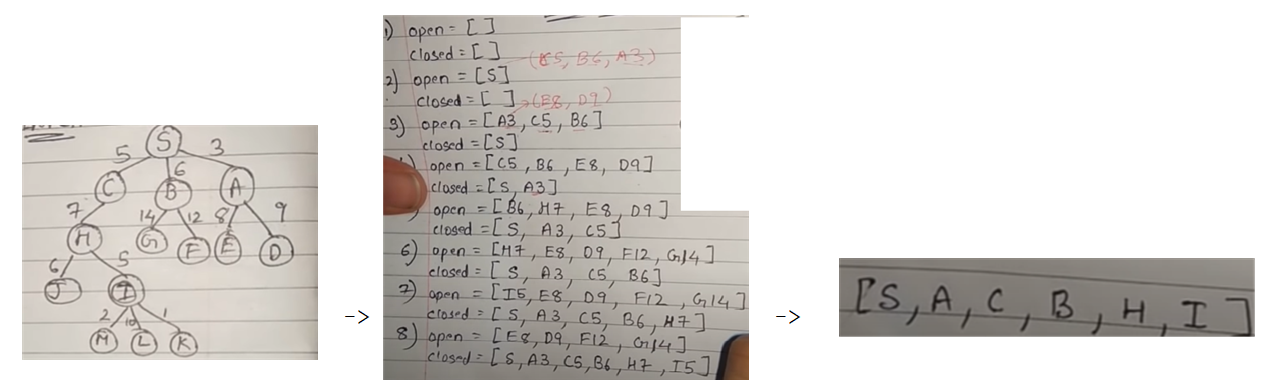 S
5 6 3
C B A
7 14 12 8 9
H G F E D
6 5
J I
2 10 1
M L K
->
1) open = [ ]
closed = [ ]
(C5, B6, A3)
2) open = [S]
closed = [ ] → (E8, D9)
3) open = [A3, C5, B6]
closed = [S]
open = [C5, B6, E8, D9]
closed = [S, A3]
open = [B6, H7, E8, D9]
closed = [S, A3, C5]
6) open = [H7, E8, D9, F12, G14]
closed = [S, A3, C5, B6]
7) open = [I5, E8, D9, F12, G14]
closed = [S, A3, C5, B6, H7]
8) open = [E8, D9, F12, G14]
closed = [S, A3, C5, B6, H7, I5]
->
[S, A, C, B, H, I]